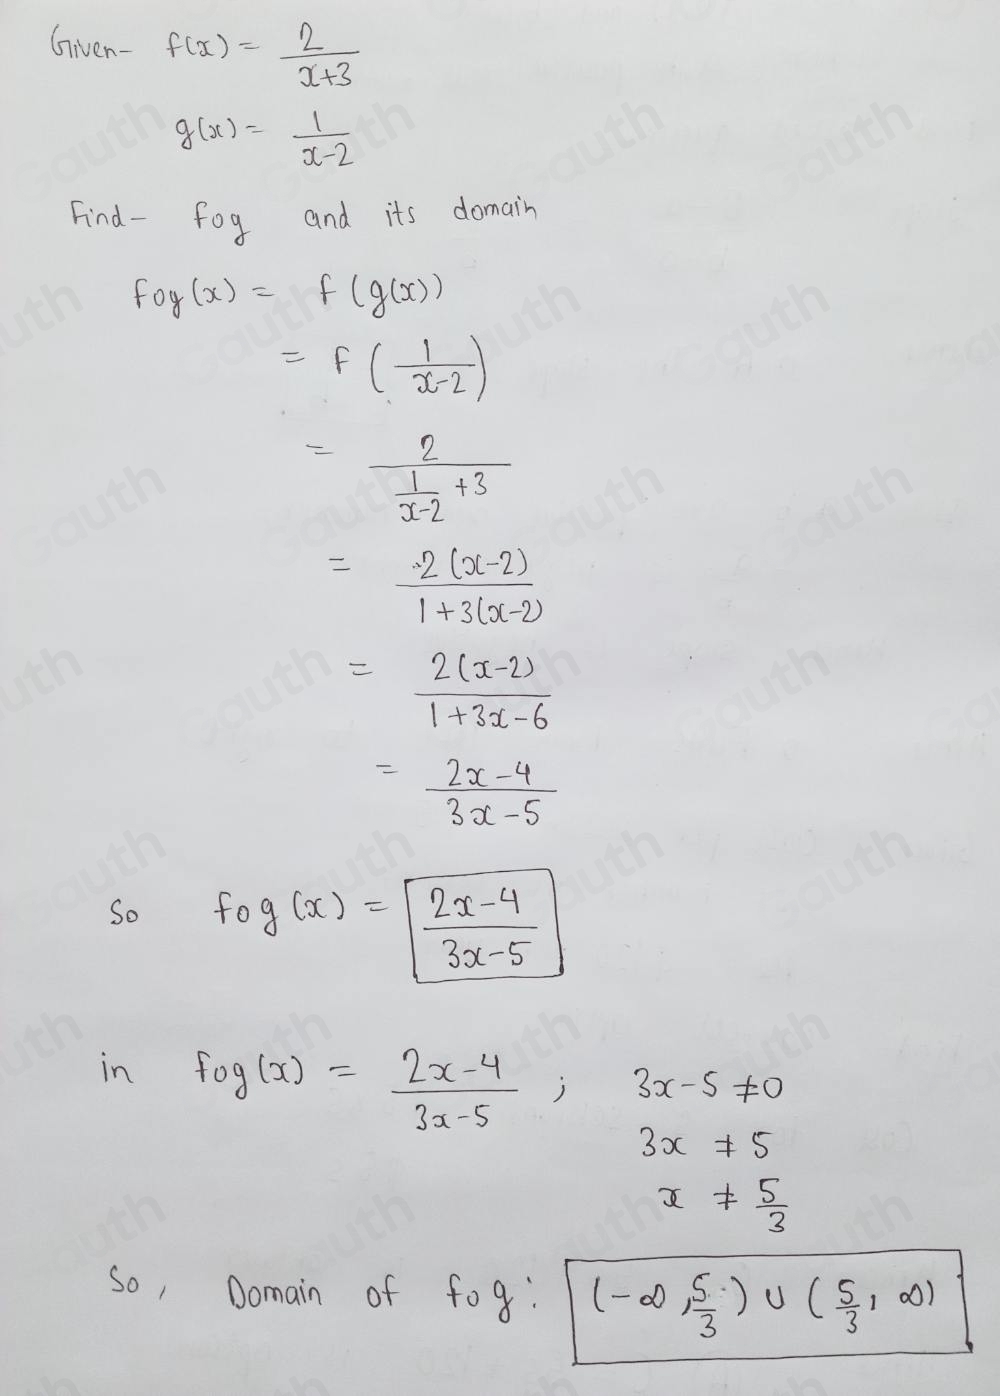 Given- f(x) = 2/(x+3)
g(x) = 1/(x-2)
Find- fog and its domain
fog(x) = f(g(x))
= f(1/(x-2))
= 2/(1/(x-2) +3)
= 2(x-2)/(1+3(x-2))
= 2(x-2)/(1+3x-6)
= (2x-4)/(3x-5)
So fog(x) = (2x-4)/(3x-5)
in fog(x) = (2x-4)/(3x-5) ; 3x-5 ≠ 0
3x ≠ 5
x ≠ 5/3
So, Domain of fog: (-∞, 5/3) ∪ (5/3, ∞)